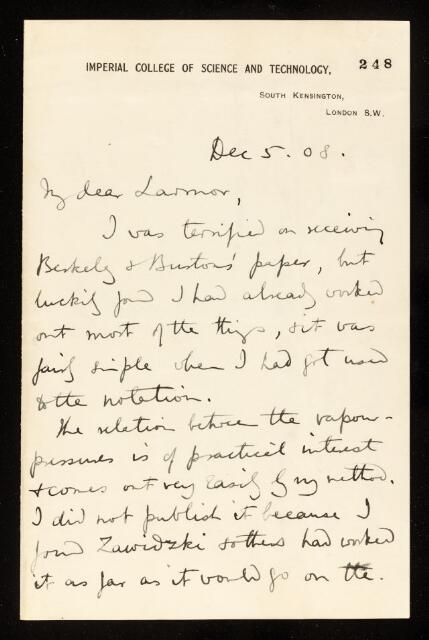 IMPERIAL COLLEGE OF SCIENCE AND TECHNOLOGY,
248
SOUTH KENSINGTON,
LONDON S.W.
Dec 5. 08.
My dear Larmor,
I was terrified on receiving
Berkeley & Burtons' paper, but
luckily found I had already worked
out most of the things, & it was
fairly simple when I had got used
to the notation.
The relation between the vapour-
pressures is of practical interest
& comes out very easily by my method.
I did not publish it because I
found Zawidzki & others had worked
it as far as it would go on the.